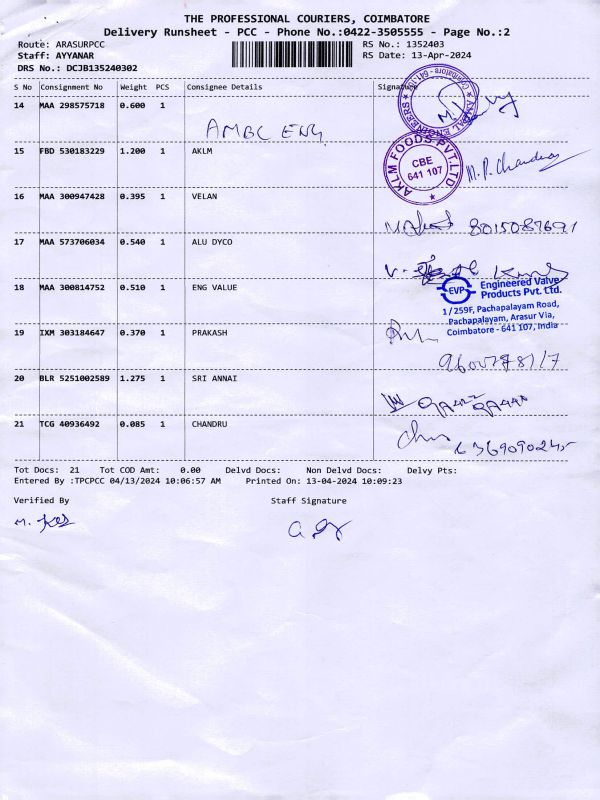 THE PROFESSIONAL COURIERS, COIMBATORE
Delivery Runsheet - PCC - Phone No.:0422-3505555 - Page No.:2
Route: ARASURPCC
RS No.: 1352403
Staff: AYYANAR
RS Date: 13-Apr-2024
DRS No.: DCJB135240302
S No Consignment No Weight PCS Consignee Details Signature
14 MAA 298575718 0.600 1
AMBC ENG
15 FBD 530183229 1.200 1 AKLM
AKLM FOODS PVT.LTD
CBE
641 107
M.P. Chandran
16 MAA 300947428 0.395 1 VELAN
8015087691
17 MAA 573706034 0.540 1 ALU DYCO
18 MAA 300814752 0.510 1 ENG VALUE
EVP Engineered Valve
Products Pvt. Ltd.
1/259F, Pachapalayam Road,
Pachapalayam, Arasur Via,
Coimbatore - 641 107, India
19 IXM 303184647 0.370 1 PRAKASH
20 BLR 5251002589 1.275 1 SRI ANNAI
21 TCG 40936492 0.085 1 CHANDRU
Tot Docs: 21 Tot COD Amt: 0.00 Delvd Docs: Non Delvd Docs: Delvy Pts:
Entered By :TPCPCC 04/13/2024 10:06:57 AM Printed On: 13-04-2024 10:09:23
Verified By Staff Signature